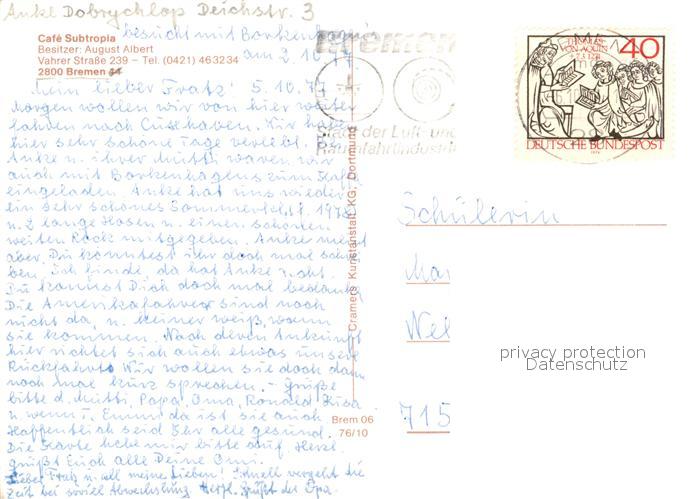 Anke Dobrychlop Deichstr. 3
besucht mit Borkenhagen
am 2.10.77
Café Subtropia
Besitzer: August Albert
Vahrer Straße 239 – Tel. (0421) 463234
2800 Bremen
Mein lieber Fratz! 5.10.77
Morgen wollen wir von hier weiter
fahren nach Cuxhaven. Wir haben
hier sehr schöne Tage verlebt. Mit
Anke u. ihrer Mutti waren wir
auch mit Borkenhagens zum Kaffee
eingeladen. Anke hat uns wieder
ein sehr schönes Sommerkleid
u. 2 lange Hosen u. einen schönen
weiten Rock mitgegeben. Anke meint
aber, Du könntest ihr doch mal schrei
ben. Ich finde, da hat Anke recht.
Du kannst Dich doch mal bedanken
Die Amerikafahrer sind noch
nicht da, u. keiner weiß, wann
sie kommen. Nach deren Ankunft
hier richtet sich auch etwas unsere
Rückfahrt. Wir wollen sie doch dann
noch mal kurz sprechen. – Grüße
bitte d. Mutti, Papa, Oma, Ronald
u. wenn da ist sie auch
Hoffentlich seid Ihr alle gesund.
Die Karte hebe mir bitte auf. Herzl.
grüßt Euch alle Deine Omi.
Lieber Fratz u. all meine Lieben! Schnell vergeht die
Zeit bei soviel Abwechslung Herzl. Grüßt der Opa.
Cramers Kunstanstalt KG, Dortmund
Brem 06
76/10
Bremen
Stadt der Luft- und
Raumfahrtindustrie
THOMAS
VON AQUIN
40
DEUTSCHE BUNDESPOST
1974
Schülerin
715
privacy protection
Datenschutz